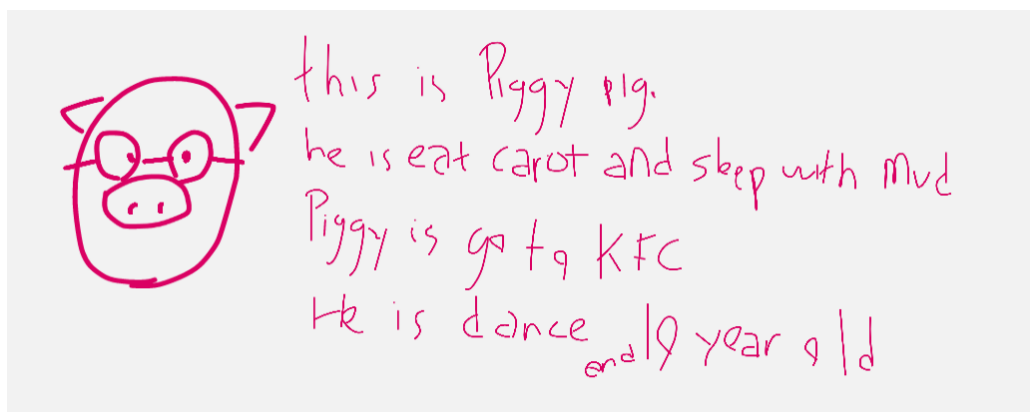 this is Piggy pig.
he is eat carot and sleep with mud
Piggy is go to KFC
He is dance and 10 year old